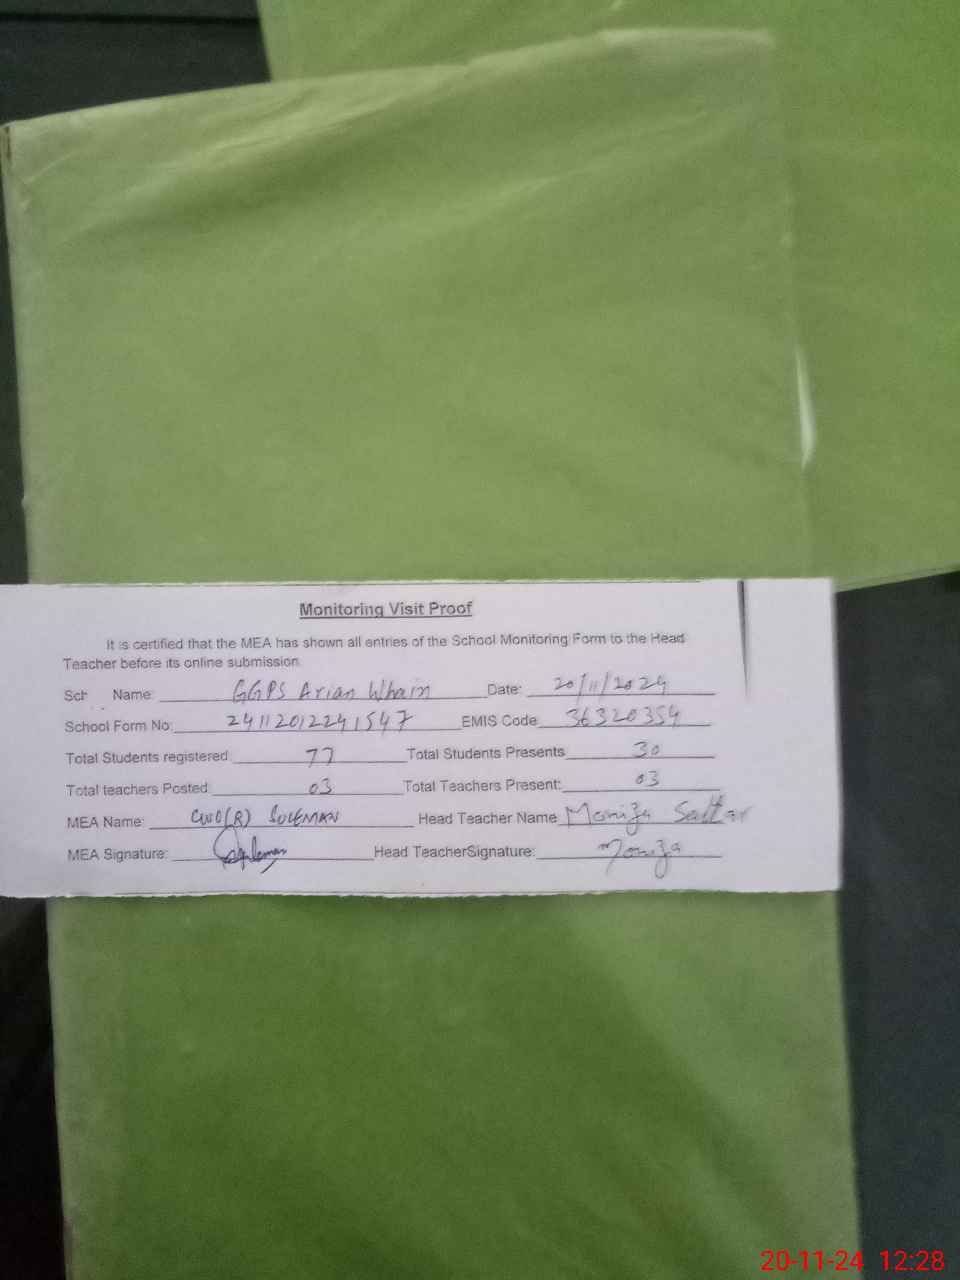 Monitoring Visit Proof
It is certified that the MEA has shown all entries of the School Monitoring Form to the Head
Teacher before its online submission.
Sch Name: GGPS Arian Whain Date: 20/11/2024
School Form No: 24112012241547 EMIS Code 36320354
Total Students registered: 77 Total Students Presents 30
Total teachers Posted: 03 Total Teachers Present: 03
MEA Name: CWO(R) SULEMAN Head Teacher Name Moniza Sattar
MEA Signature: Head TeacherSignature: Moniza
20-11-24 12:28